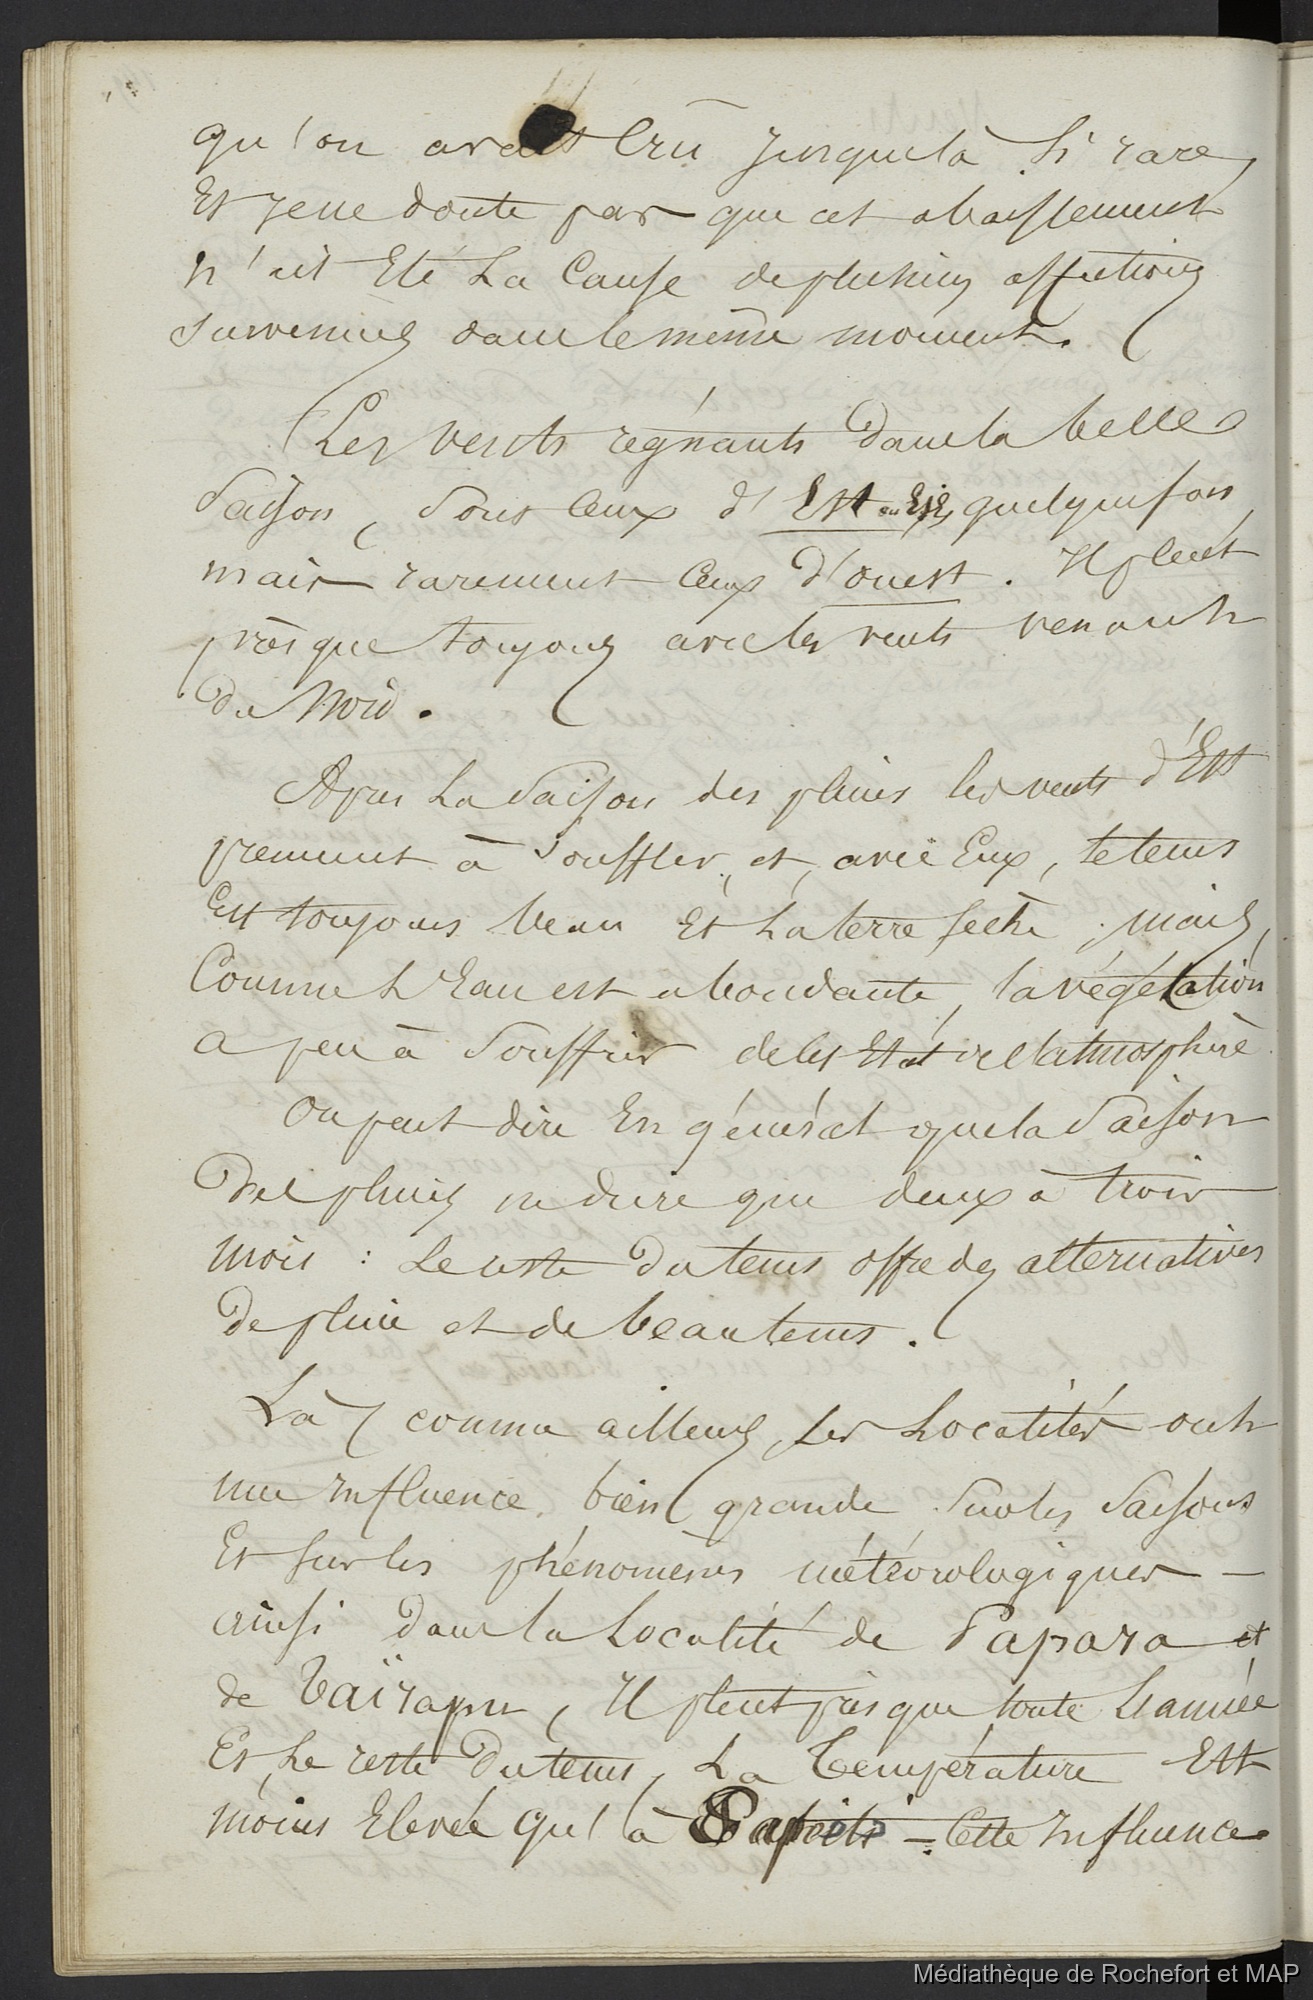 qu'on avait Crû jusque là Si rare,
Et je ne doute pas que cet abaissement
n'ait Eté La Cause de plusieurs affections
survenues dans le même moment.
Les vents régnants dans la belle
Saison, sont Ceux d'Est ou E quelquefois,
mais rarement Ceux d'ouest. Il pleut
présque toujours avec les vents venants
du Nord.
Après La Saison des pluies les vents d'Est
prennent à Souffler, et, avec Eux, le tems
Est toujours beau Et La terre sèche ; mais,
Comme L'Eau est abondante, la végétation
a peu à Souffrir de cet Etat de l'atmosphère
On peut dire En général que la Saison
Des pluies ne dure que deux à trois
mois : Le reste du tems offre des alternatives
De pluie et de beau tems.
Là, comme ailleurs, Les Localités ont
une Influence bien grande Sur les Saisons
Et sur les phénomènes météorologiques —
ainsi dans la Localité de Papara et
de Taïrapu, Il pleut présque toute L'année
Et, Le reste du tems, La Température Est
moins Elevée qu'à Papeïti — Cette Influence
Médiathèque de Rochefort et MAP